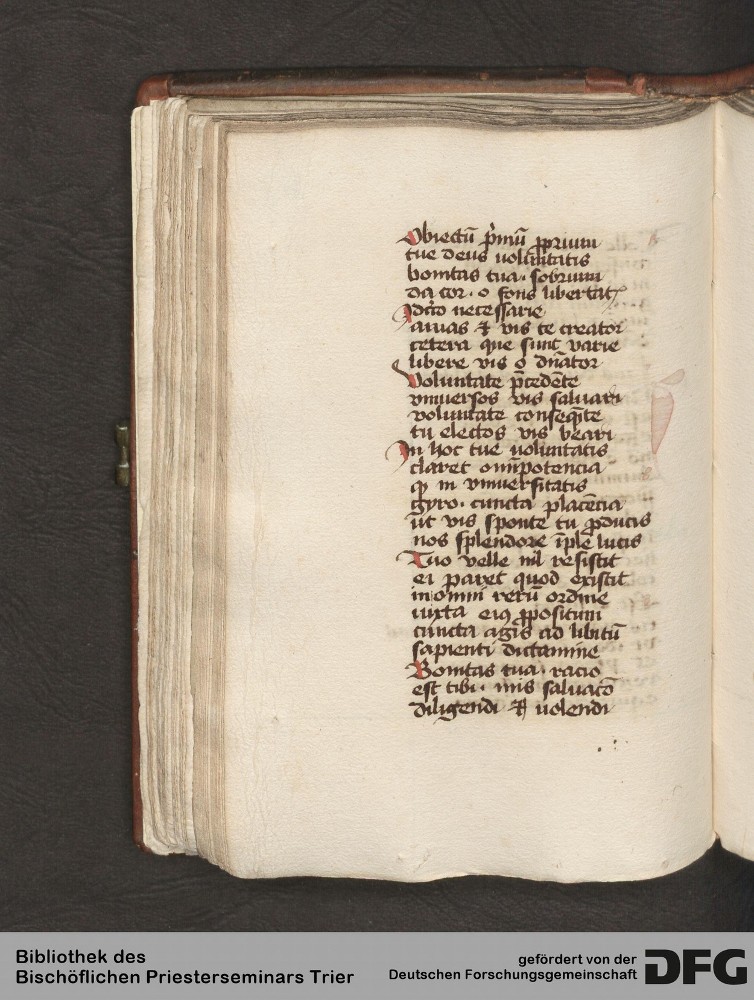 Obiectū p̄mū ꝓprium
tue deus uoluntatis
bonitas tua· sobrium
da cor· o fons libertatꝭ
necessarie
amas ⁊ vis te creator
cetera que sunt varie
libere vis o dn̄ator
Voluntate p̄cedēte
vniuersos vis saluari
voluntate conseqn̄te
tu electos vis beari
In hoc tue uoluntatis
claret omīpotencia
in vniuersitatis
gyro· cuncta placēcia
ut vis sponte tu ꝓducis
nos splendore īple lucis
Tuo velle nil resistit
ei paret quod existit
in omni rerū ordine
iuxta eiꝰ ꝓpositum
cuncta agis ad libitū
sapienti dictamine
Bonitas tua· racio
est tibi· nr̄is saluacō
diligendi ⁊ uolendi
Bibliothek des
Bischöflichen Priesterseminars Trier
gefördert von der
Deutschen Forschungsgemeinschaft
DFG